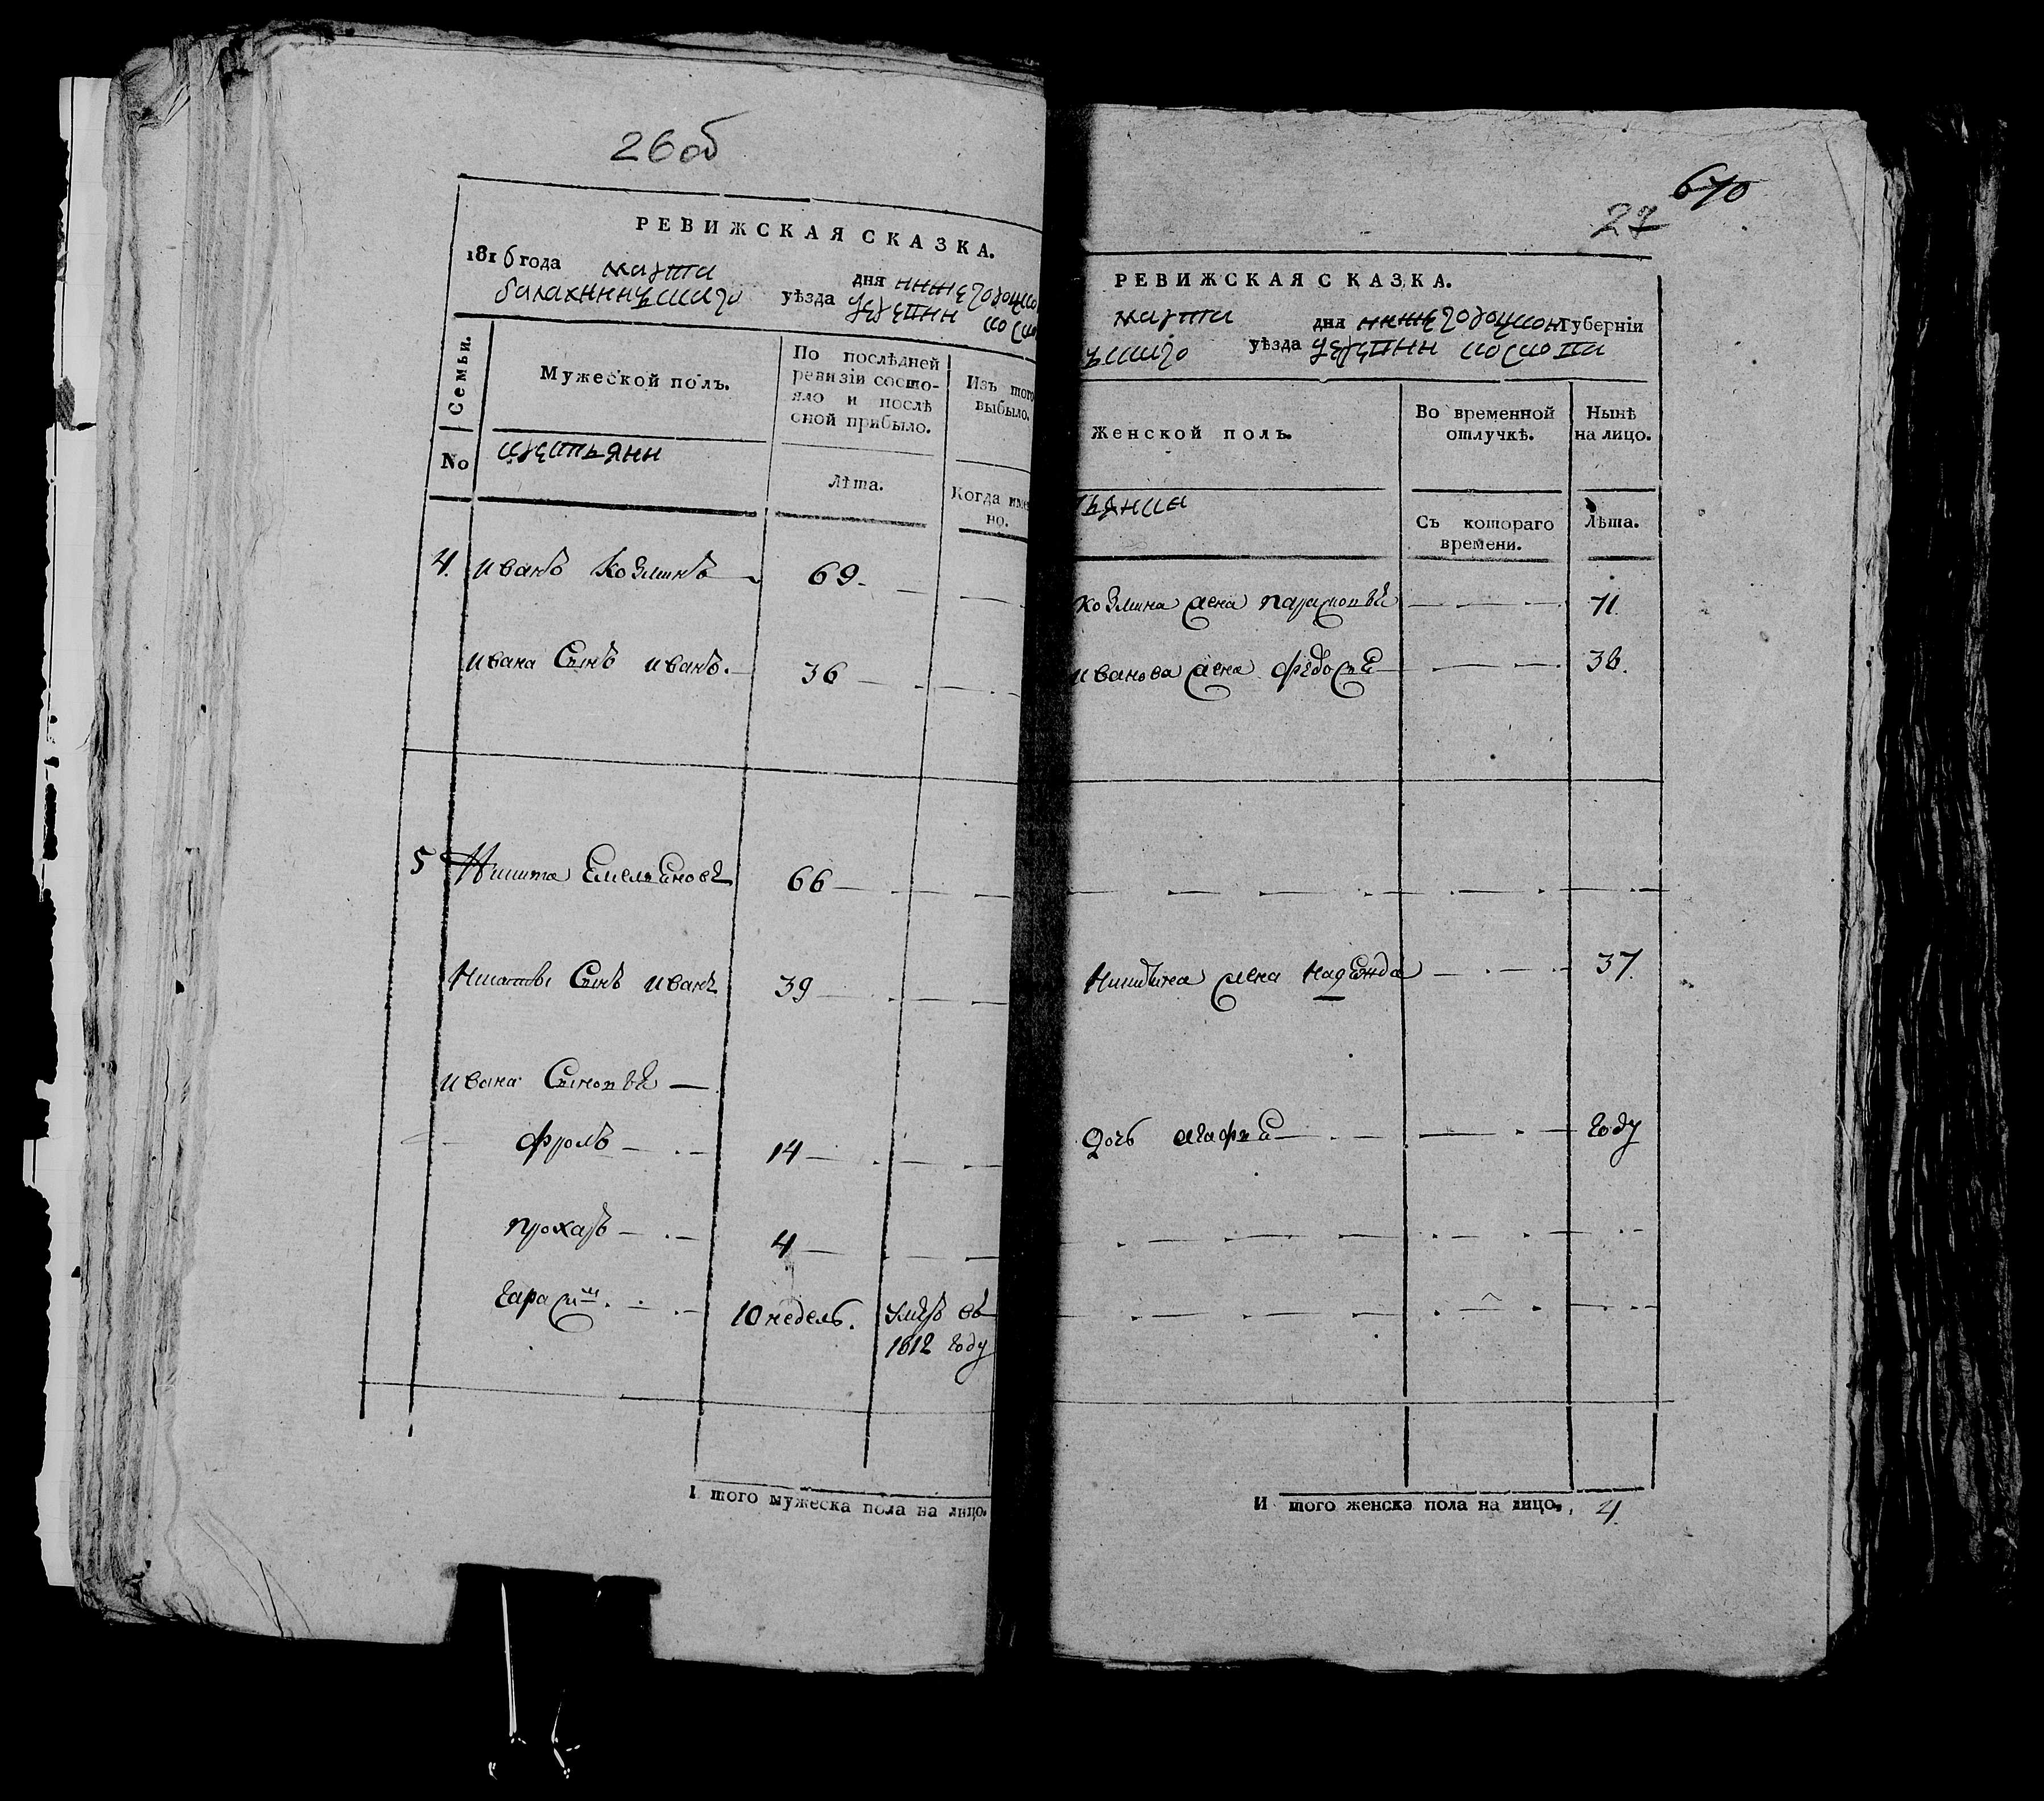 26 об
РЕВИЖСКАЯ СКАЗКА.
1816 года марта дня нижегородско
балахнинскаго уѣзда деревни
Семьи.
No
Мужеской полъ.
крестьяни
По послѣдней ревизіи состояло и послѣ оной прибыло.
Лѣта.
Изъ того выбыло.
Когда имено.
4. иванъ Козминъ 69
ивана Сынъ иванъ. 36
5 Никита Емельянов 66
Никитъ Сынъ иванъ 39
ивана Сыновья
фролъ 14
прохаръ 4
Гарасим 10 недель. умеръ въ 1812 году
И того мужеска пола на лицо.
670
27
РЕВИЖСКАЯ СКАЗКА.
марта дня нижегородской губерніи
скаго уѣзда деревни
Женской полъ.
ьянки
Во временной отлучкѣ.
Съ котораго времени.
Нынѣ на лицо.
Лѣта.
козмина жена парасковья 71.
иванова жена федосья 38.
Никитина жена надежда 37.
Дочь агафья году
И того женска пола на лицо, 4.